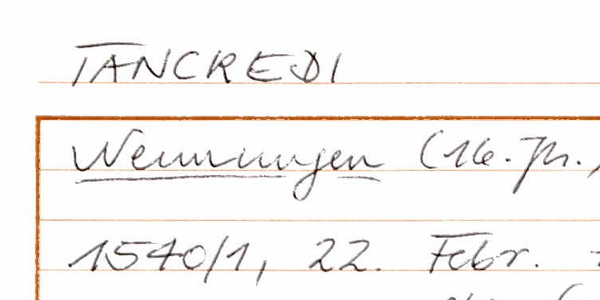 TANCREDI
Nennungen (16. Jh.)
1540/1, 22. Febr.